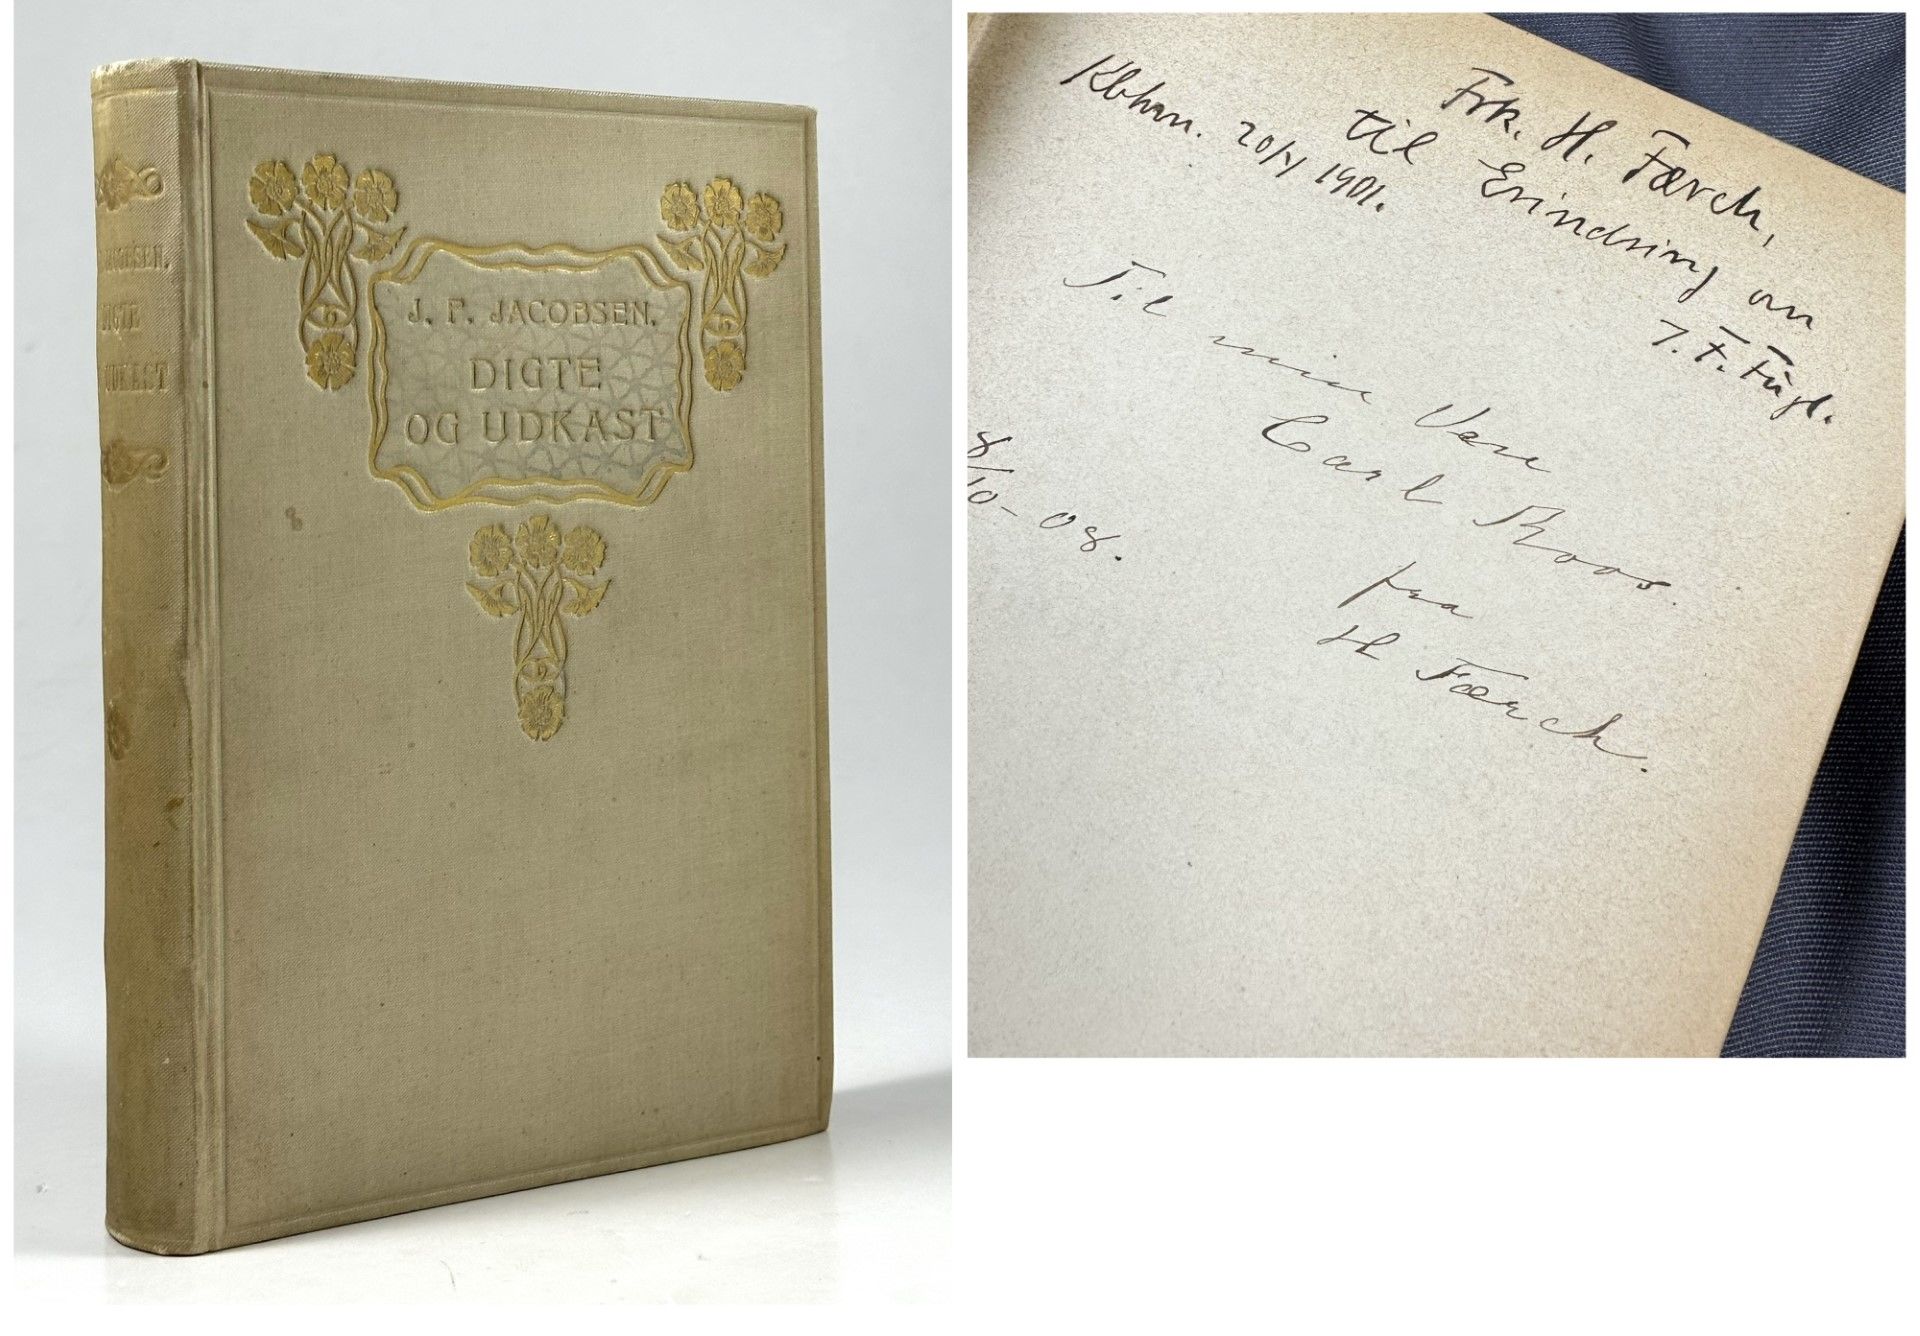 JACOBSEN.
DIGTE
UDKAST
J. P. JACOBSEN.
DIGTE
OG UDKAST
Frk. H. Færch,
til Erindring om
Kbhvn. 20/4 1901.
Til min Ven
Carl Roos.
fra
H Færch.
8/10-08.